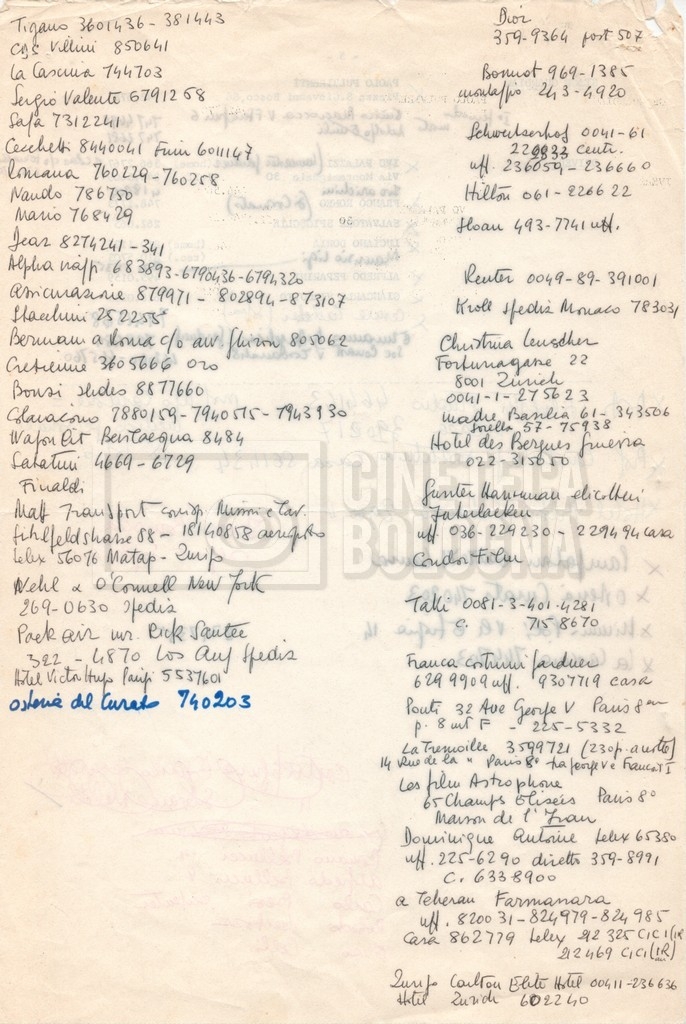 Tirano 3601436 - 381443
850641
La Cascina 744703
Sergio Valente 6791268
Safa 7312241
Cecchetti 8440041 Fuin 6011147
Romana 760229-760258
Nando 786750
Mario 768429
Jear 8274241-341
Alpha 683893-6790436-6794320
Assicurazione 879971 - 802894-873107
Stacchini 252255
Bermani a Roma c/o avv. Ghiron 805062
3605666 oro
Bonsi slides 8877660
7880159-7940515-7943930
Wagon Lit Bevilacqua 8484
Sabatini 4669-6729
Finaldi
Mat Transport
58 - 18140858
telex 56076 Matap-Zurigo
& O'Connell New York
269-0630 spediz
Pack air mr. Rick Santee
322 - 4870 Los Ang spediz
Hotel Victor Hugo Parigi 5537601
Osteria del Curato 740203
Dior
359-9364 post 507
Bonnot 969-1385
montaggio 243-4920
Schweizerhof 0041-61
220833 centr.
uff. 236059-236660
Hilton 061-226622
Sloan 493-7741 uff.
Reuter 0049-89-391001
Kroll spediz Monaco 783031
Christina Leuscher
Fortunagasse 22
8001 Zürich
0041-1-275623
madre Basilea 61-343506
sorella 57-75938
Hotel des Bergues Ginevra
022-315050
Gunter elicotteri
Interlaken
uff. 036-229230 - 229494 casa
Condor Film
Taki 0081-3-401-4281
c. 715 8670
Franca costumi Gardner
6299909 uff. 9307719 casa
Ponti 32 Ave George V Paris 8em
p. 8 int F - 225-5332
La Tremoille 3599721
14 Rue de la " Paris 8° tra george V e Francois I
Les film Astrophore
65 Champs Elisées Paris 8°
Maison de l'Iran
Dominique Antoine telex 65350
uff. 225-6290 diretto 359-8991
c. 633-8900
a Teheran Farmanara
uff. 820031-824979-824985
Casa 862779 telex 212325 CICI (IR
212469 CICI (IR
Zurigo Carlton Elite Hotel 00411-236636
Hotel Zurich 602240
CINETECA
BOLOGNA